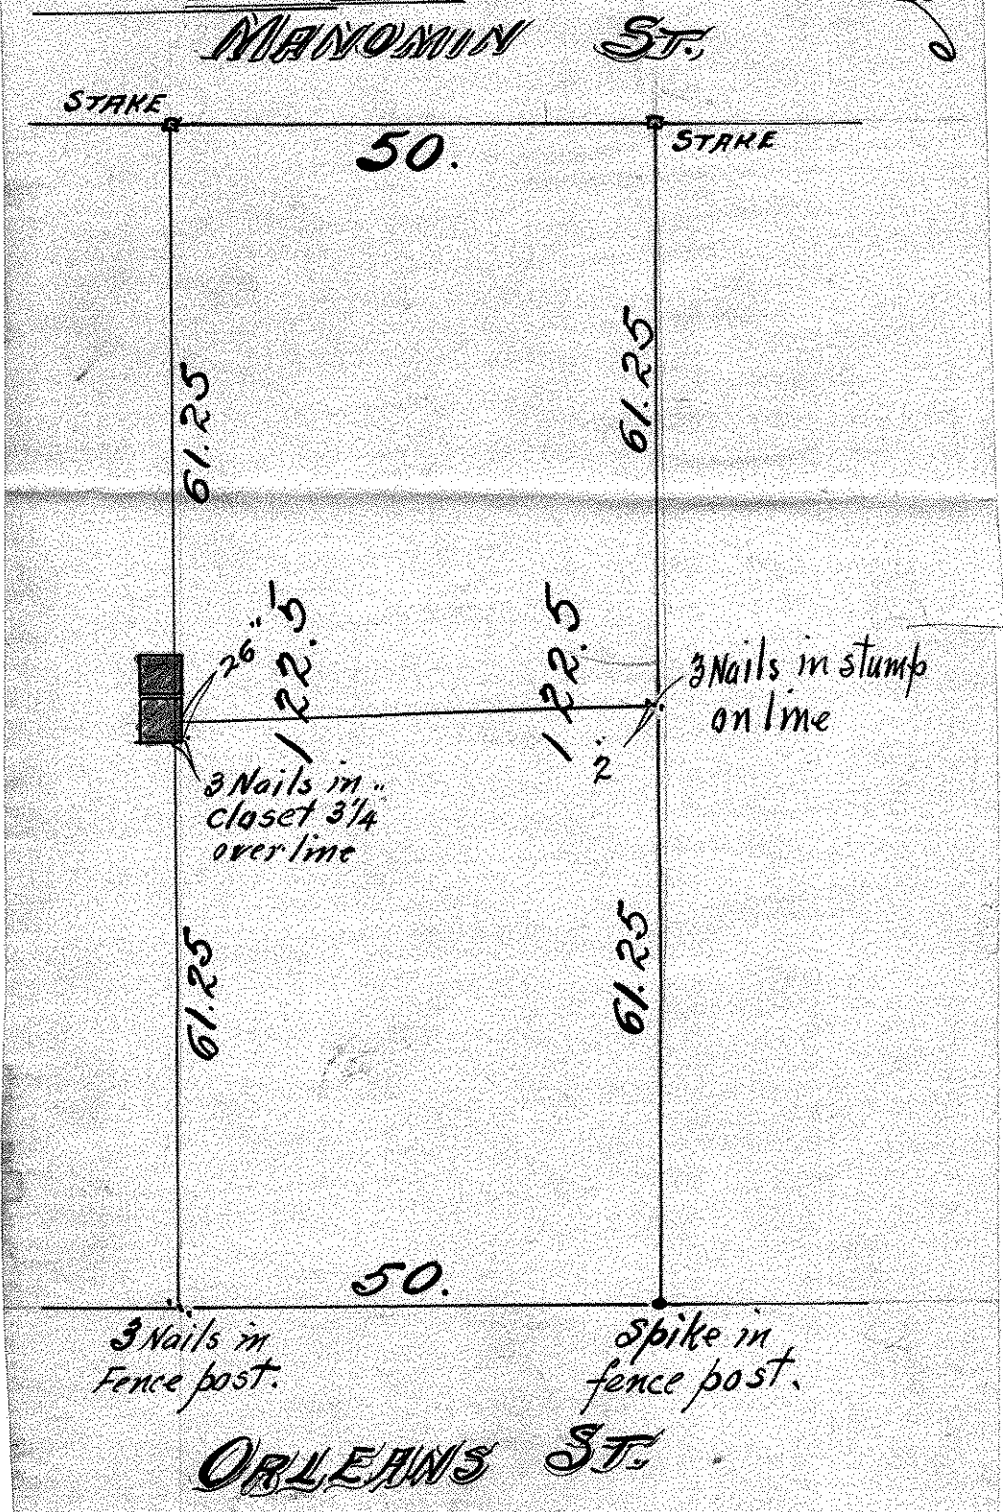 MANOMIN ST.
STAKE
STAKE
50.
61.25
61.25
26"
122.5
122.5
3 Nails in stump
on line
2"
3 Nails in
closet 3¼"
over line
61.25
61.25
50.
3 Nails in
Fence post.
Spike in
fence post.
ORLEANS ST.